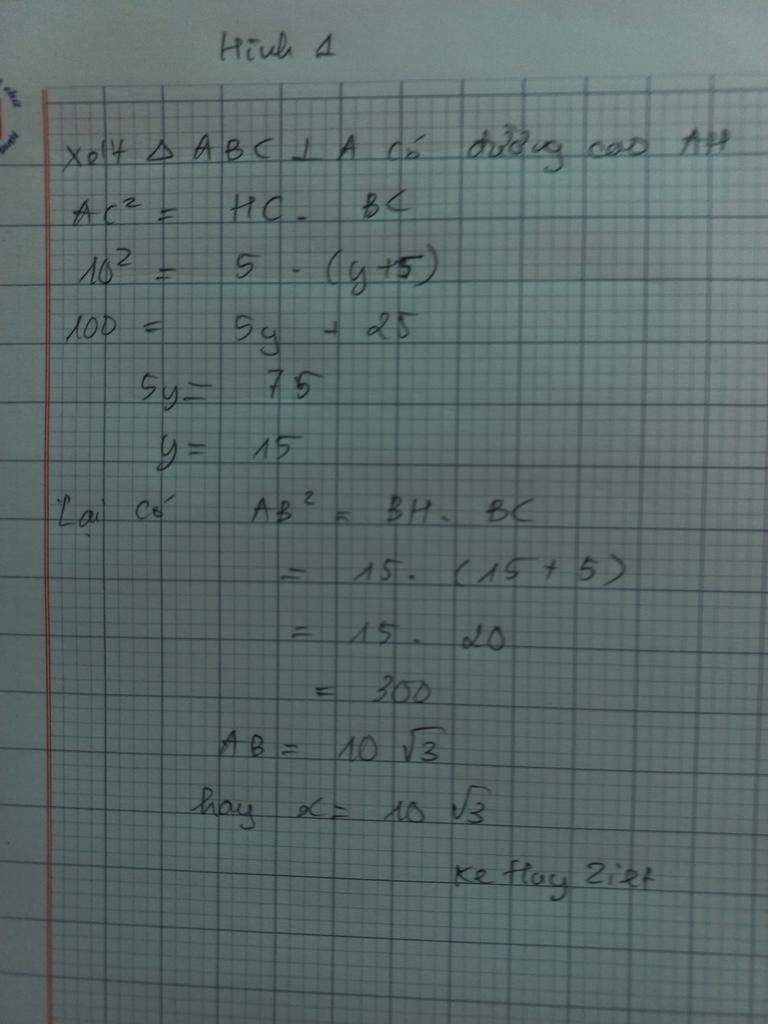 Hình 1
Xét Δ ABC ⊥ A có đường cao AH
AC² = HC . BC
10² = 5 . (y+5)
100 = 5y + 25
5y = 75
y = 15
Lại có AB² = BH . BC
= 15 . (15 + 5)
= 15 . 20
= 300
AB = 10 √3
hay x = 10 √3